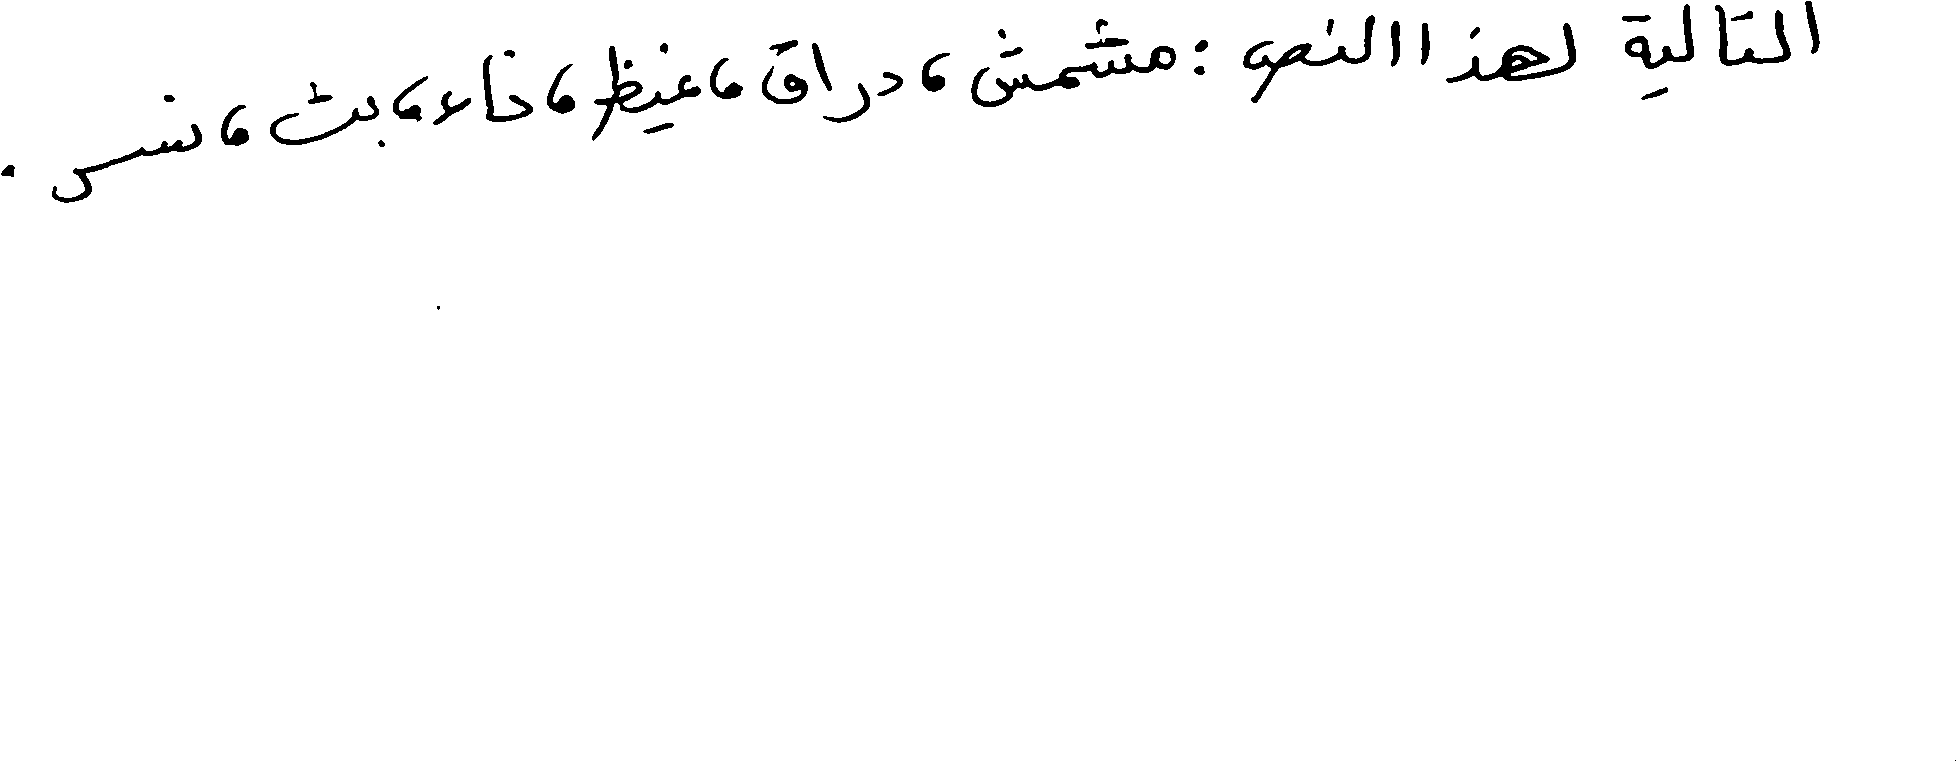 التالية لهذا النص : مشمش ، دراق ، غيظ ، خاء ، بث ، نسر .